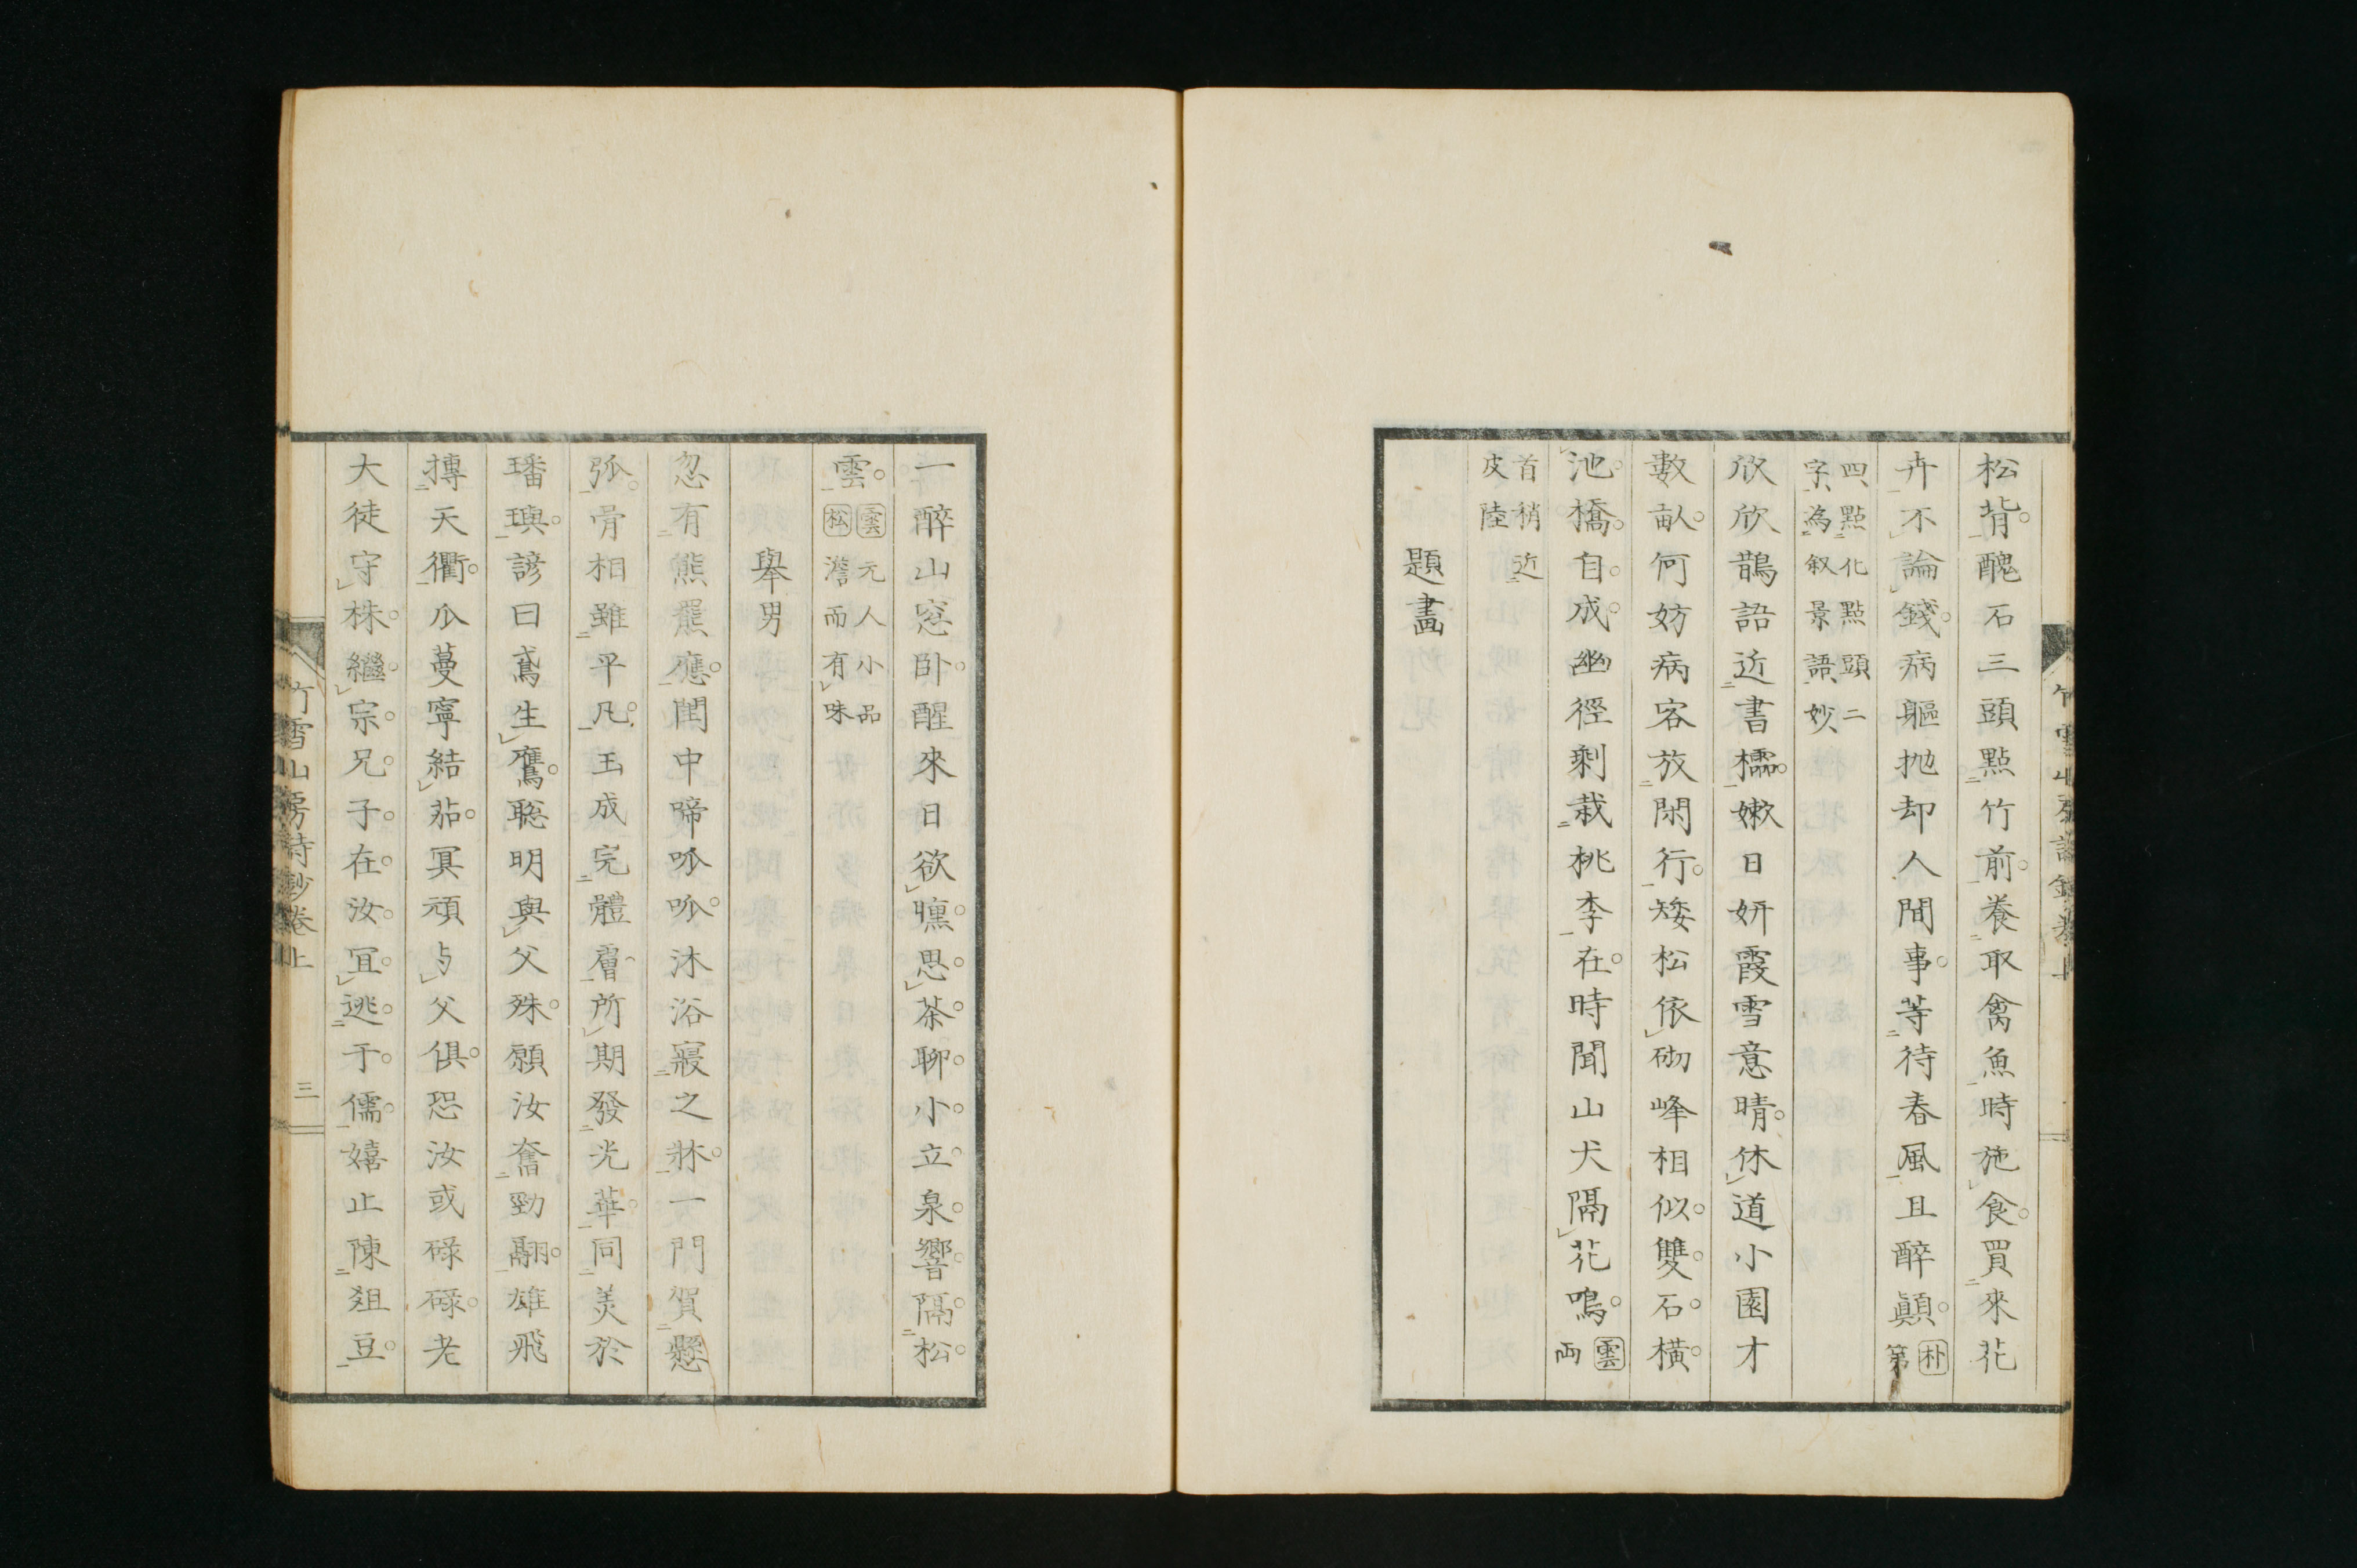 松背醜石三頭點竹前養取禽魚時施食買來花
卉不論錢病軀抛却人間事等待春風且醉顚朴第
四點化點頭二
字為叙景語妙
欣欣鵲語近書櫺嫩日妍霞雪意晴休道小園才
數畝何妨病客放閑行矮松依砌峰相似雙石橫
池橋自成幽徑剩栽桃李在時聞山犬隔花鳴雲両
首稍近
皮陸
題畫
一醉山窓卧醒來日欲曛思茶聊小立泉響隔松
雲雲元人小品
松澹而有味
擧男
忽有熊羆應閨中啼呱呱沐浴寢之牀一門賀懸
弧骨相雖平凡玉成完體膚所期發光華同美於
璠璵諺曰鳶生鷹聡明與父殊願汝奮勁翮雄飛
摶天衢瓜蔓寧結茄冥頑与父俱恐汝或碌碌老
大徒守株繼宗兄子在汝冝逃于儒嬉止陳俎豆
竹雪山房詩鈔卷上
三